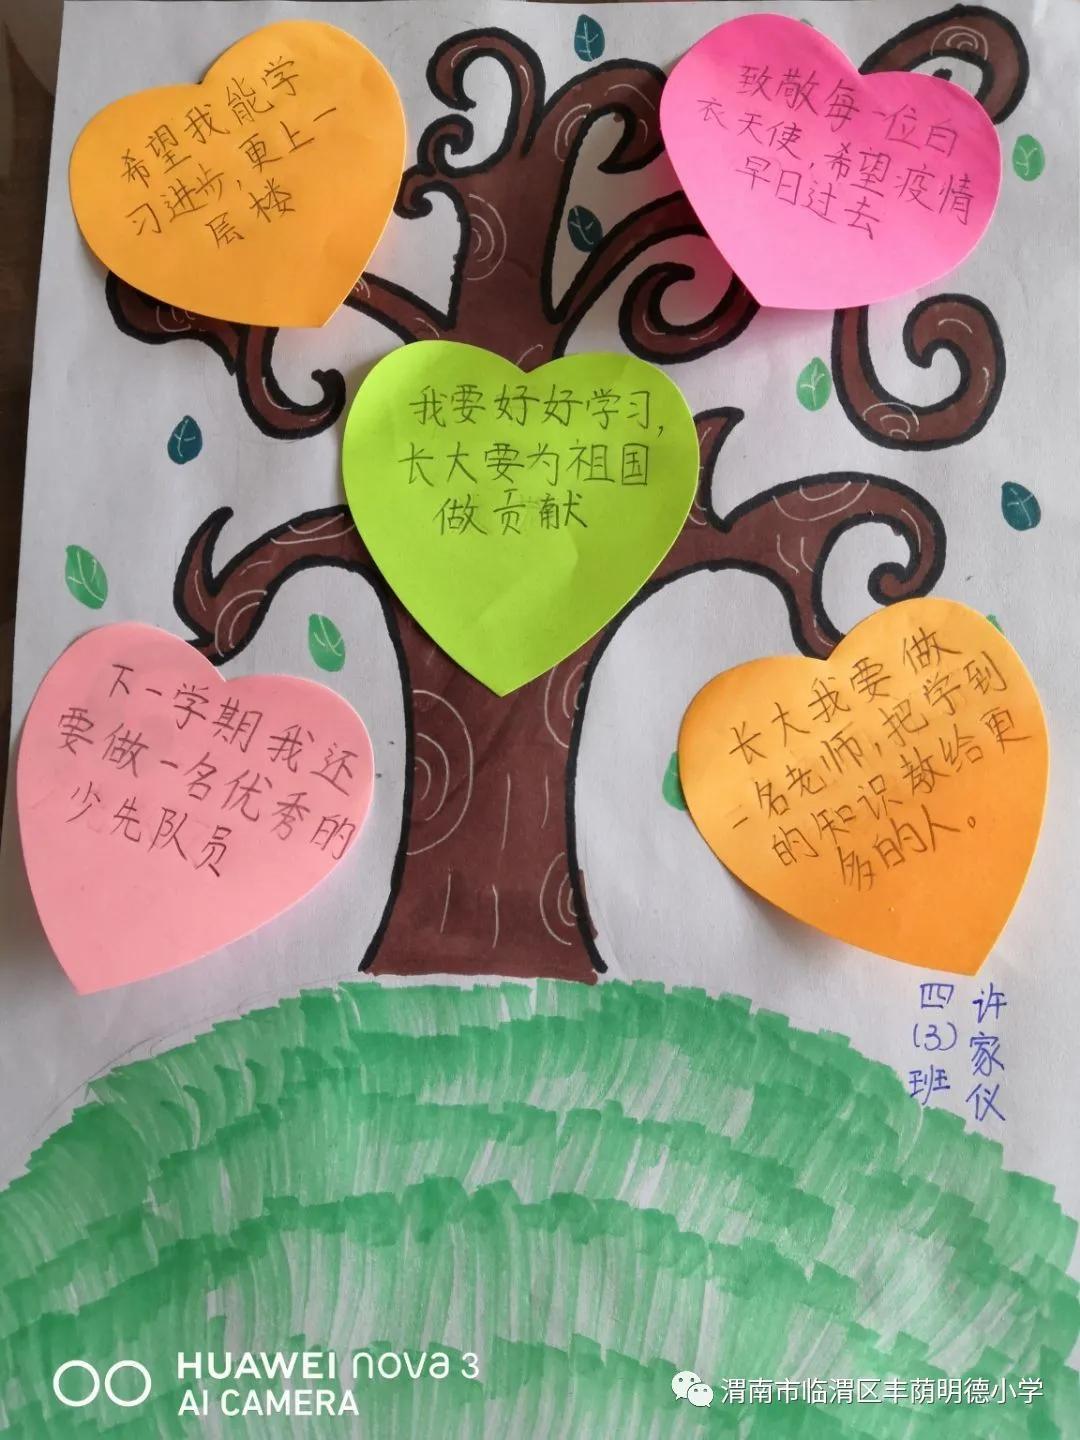 希望我能学
习进步,更上一
层楼
致敬每一位白
衣天使,希望疫情
早日过去
我要好好学习,
长大要为祖国
做贡献
下一学期我还
要做一名优秀的
少先队员
长大我要做
一名老师,把学到
的知识教给更
多的人。
四(3)班
许家仪
HUAWEI nova 3
AI CAMERA
渭南市临渭区丰荫明德小学